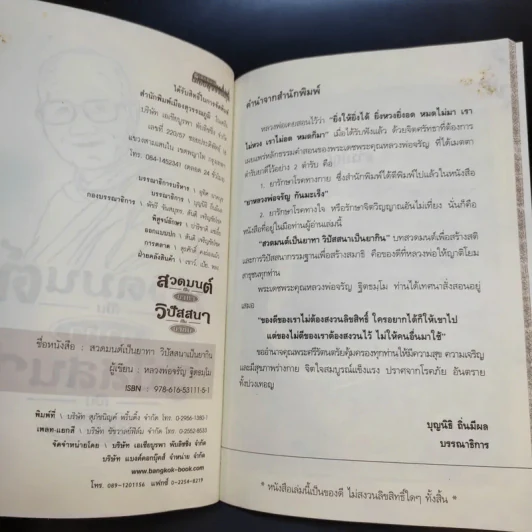 ได้รับสิทธิ์ในการจัดพิมพ์
สำนักพิมพ์เมืองสุวรรณภูมิ
โทร. 084-1452341
บรรณาธิการบริหาร :
บรรณาธิการ :
กองบรรณาธิการ :
พิสูจน์อักษร :
ออกแบบปก :
การตลาด :
ฝ่ายคลังสินค้า :
สวดมนต์
เป็นยาทา
วิปัสสนา
เป็นยากิน
ชื่อหนังสือ : สวดมนต์เป็นยาทา วิปัสสนาเป็นยากิน
ผู้เขียน : หลวงพ่อจรัญ ฐิตธมฺโม
ISBN : 978-616-53111-5-1
พิมพ์ที่ : บริษัท สุภัชนิญค์ พริ้นติ้ง จำกัด โทร. 0-2956-1380-1
เพลท-แยกสี :
จัดจำหน่ายโดย : บริษัท เอเชียบูรพา พับลิชชิ่ง จำกัด
บริษัท แบงค์คอกบุ๊คส์ จำหน่าย จำกัด
www.bangkok-book.com
โทร. 089-1201156 แฟกซ์ 0-2254-8219
คำนำจากสำนักพิมพ์
หลวงพ่อเคยสอนไว้ว่า "ยิ่งให้ยิ่งได้ ยิ่งหวงยิ่งอด หมดไม่มา เรา
ไม่หวง เราไม่อด หมดก็มา" เมื่อได้รับฟังแล้ว ด้วยจิตศรัทธาที่ต้องการ
เผยแพร่หลักธรรมคำสอนของพระเดชพระคุณหลวงพ่อจรัญ ที่ได้เมตตา
ตำรับยาดีไว้อย่าง 2 ตำรับ คือ
1. ยารักษาโรคทางกาย ซึ่งสำนักพิมพ์ได้ตีพิมพ์ไปแล้วในหนังสือ
"ยาหลวงพ่อจรัญ กันมะเร็ง"
2. ยารักษาโรคทางใจ หรือรักษาจิตวิญญาณอันไม่เที่ยง นั่นก็คือ
หนังสือที่อยู่ในมือท่านผู้อ่านเล่มนี้
"สวดมนต์เป็นยาทา วิปัสสนาเป็นยากิน" บทสวดมนต์เพื่อสร้างสติ
และการวิปัสสนากรรมฐานเพื่อสร้างสมาธิ คือของดีที่หลวงพ่อให้ญาติโยม
สาธุชนทุกท่าน
พระเดชพระคุณหลวงพ่อจรัญ ฐิตธมฺโม ท่านได้เทศนาสั่งสอนอยู่
เสมอ
"ของดีของเราไม่ต้องสงวนลิขสิทธิ์ ใครอยากได้ก็ให้เขาไป
แต่ของไม่ดีของเราต้องสงวนไว้ ไม่ให้คนอื่นมาใช้"
ขออำนาจคุณพระศรีรัตนตรัยคุ้มครองทุกท่านให้มีความสุข ความเจริญ
และมีสุขภาพร่างกาย จิตใจสมบูรณ์แข็งแรง ปราศจากโรคภัย อันตราย
ทั้งปวงเทอญ
บุญนิธิ ถิ่นมีผล
บรรณาธิการ
* หนังสือเล่มนี้เป็นของดี ไม่สงวนลิขสิทธิ์ใดๆ ทั้งสิ้น *